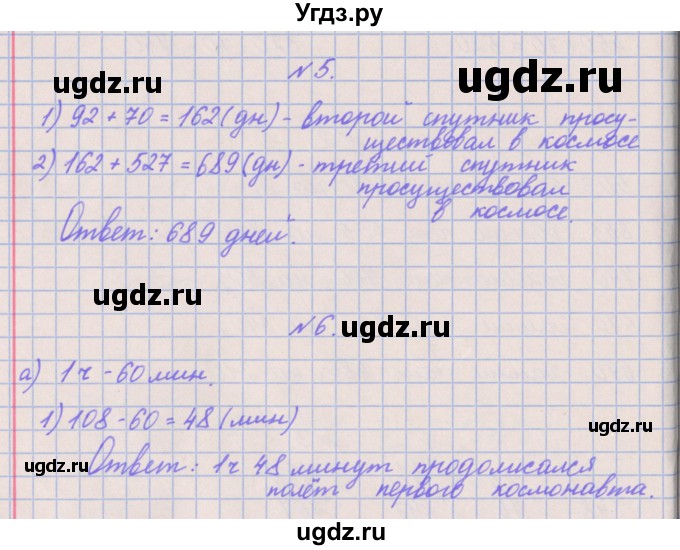 Угдз.ру
ugdz.ru
ugdz.ru
№5.
1) 92 + 70 = 162 (дн) - второй спутник просу-
ществовал в космосе
2) 162 + 527 = 689 (дн) - третий спутник
просуществовал
в космосе.
Ответ: 689 дней.
ugdz.ru
№6.
ugdz.ru
а) 1 ч - 60 мин.
1) 108 - 60 = 48 (мин)
ugdz.ru
ugdz.ru
Ответ: 1 ч 48 минут продолжался
полёт первого космонавта.
ugdz.ru
ugdz.ru